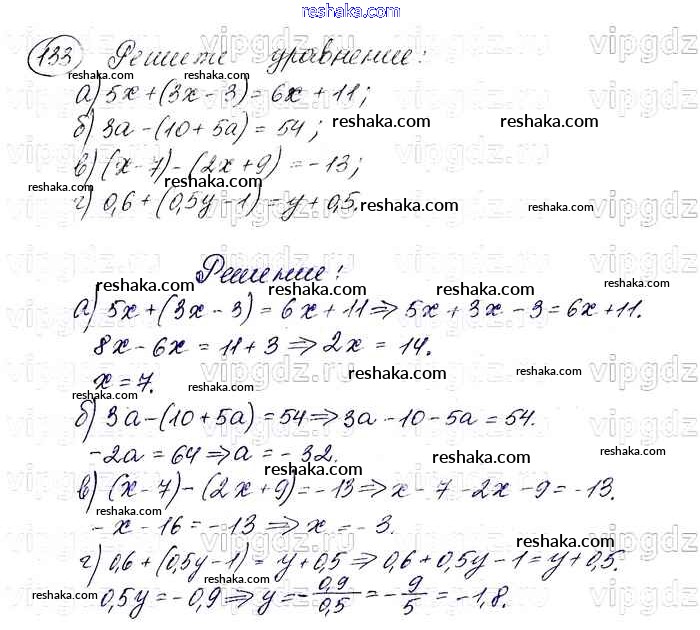 reshaka.com
133 Решите уравнение:
а) 5x+(3x-3)=6x+11;
б) 3a-(10+5a)=54;
в) (x-7)-(2x+9)=-13;
г) 0,6+(0,5y-1)=y+0,5.
Решение:
а) 5x+(3x-3)=6x+11⇒5x+3x-3=6x+11.
8x-6x=11+3⇒2x=14.
x=7.
б) 3a-(10+5a)=54⇒3a-10-5a=54.
-2a=64⇒a=-32.
в) (x-7)-(2x+9)=-13⇒x-7-2x-9=-13.
-x-16=-13⇒x=-3.
г) 0,6+(0,5y-1)=y+0,5⇒0,6+0,5y-1=y+0,5.
0,5y=-0,9⇒y=-0,9/0,5=-9/5=-1,8.